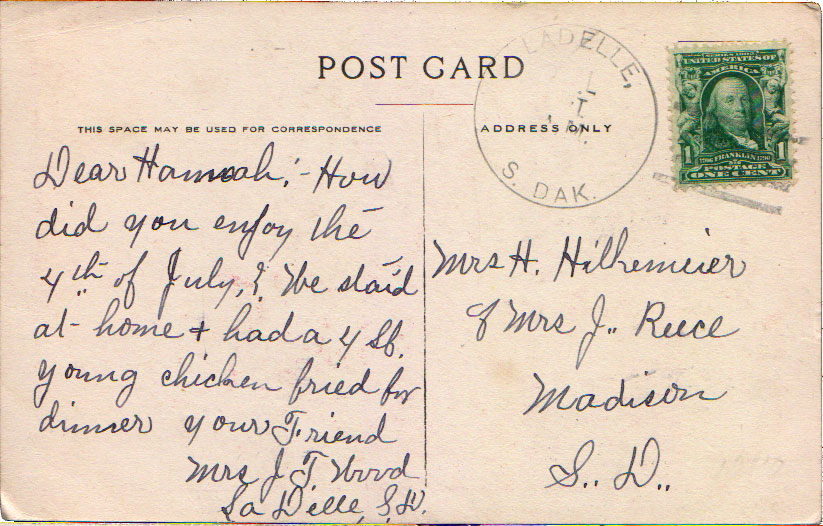 POST CARD
THIS SPACE MAY BE USED FOR CORRESPONDENCE
ADDRESS ONLY
LADELLE,
S. DAK.
SERIES 1902
UNITED STATES OF
AMERICA
1 1
1706 FRANKLIN 1790
POSTAGE
ONE CENT
Dear Hannah:- How
did you enjoy the
4th of July,? We staid
at home + had a 4 lb.
young chicken fried for
dinner your Friend
Mrs J. T. Wood
La Delle, S.D.
Mrs H. Hilkemeier
Mrs J.. Reece
Madison
S.. D..